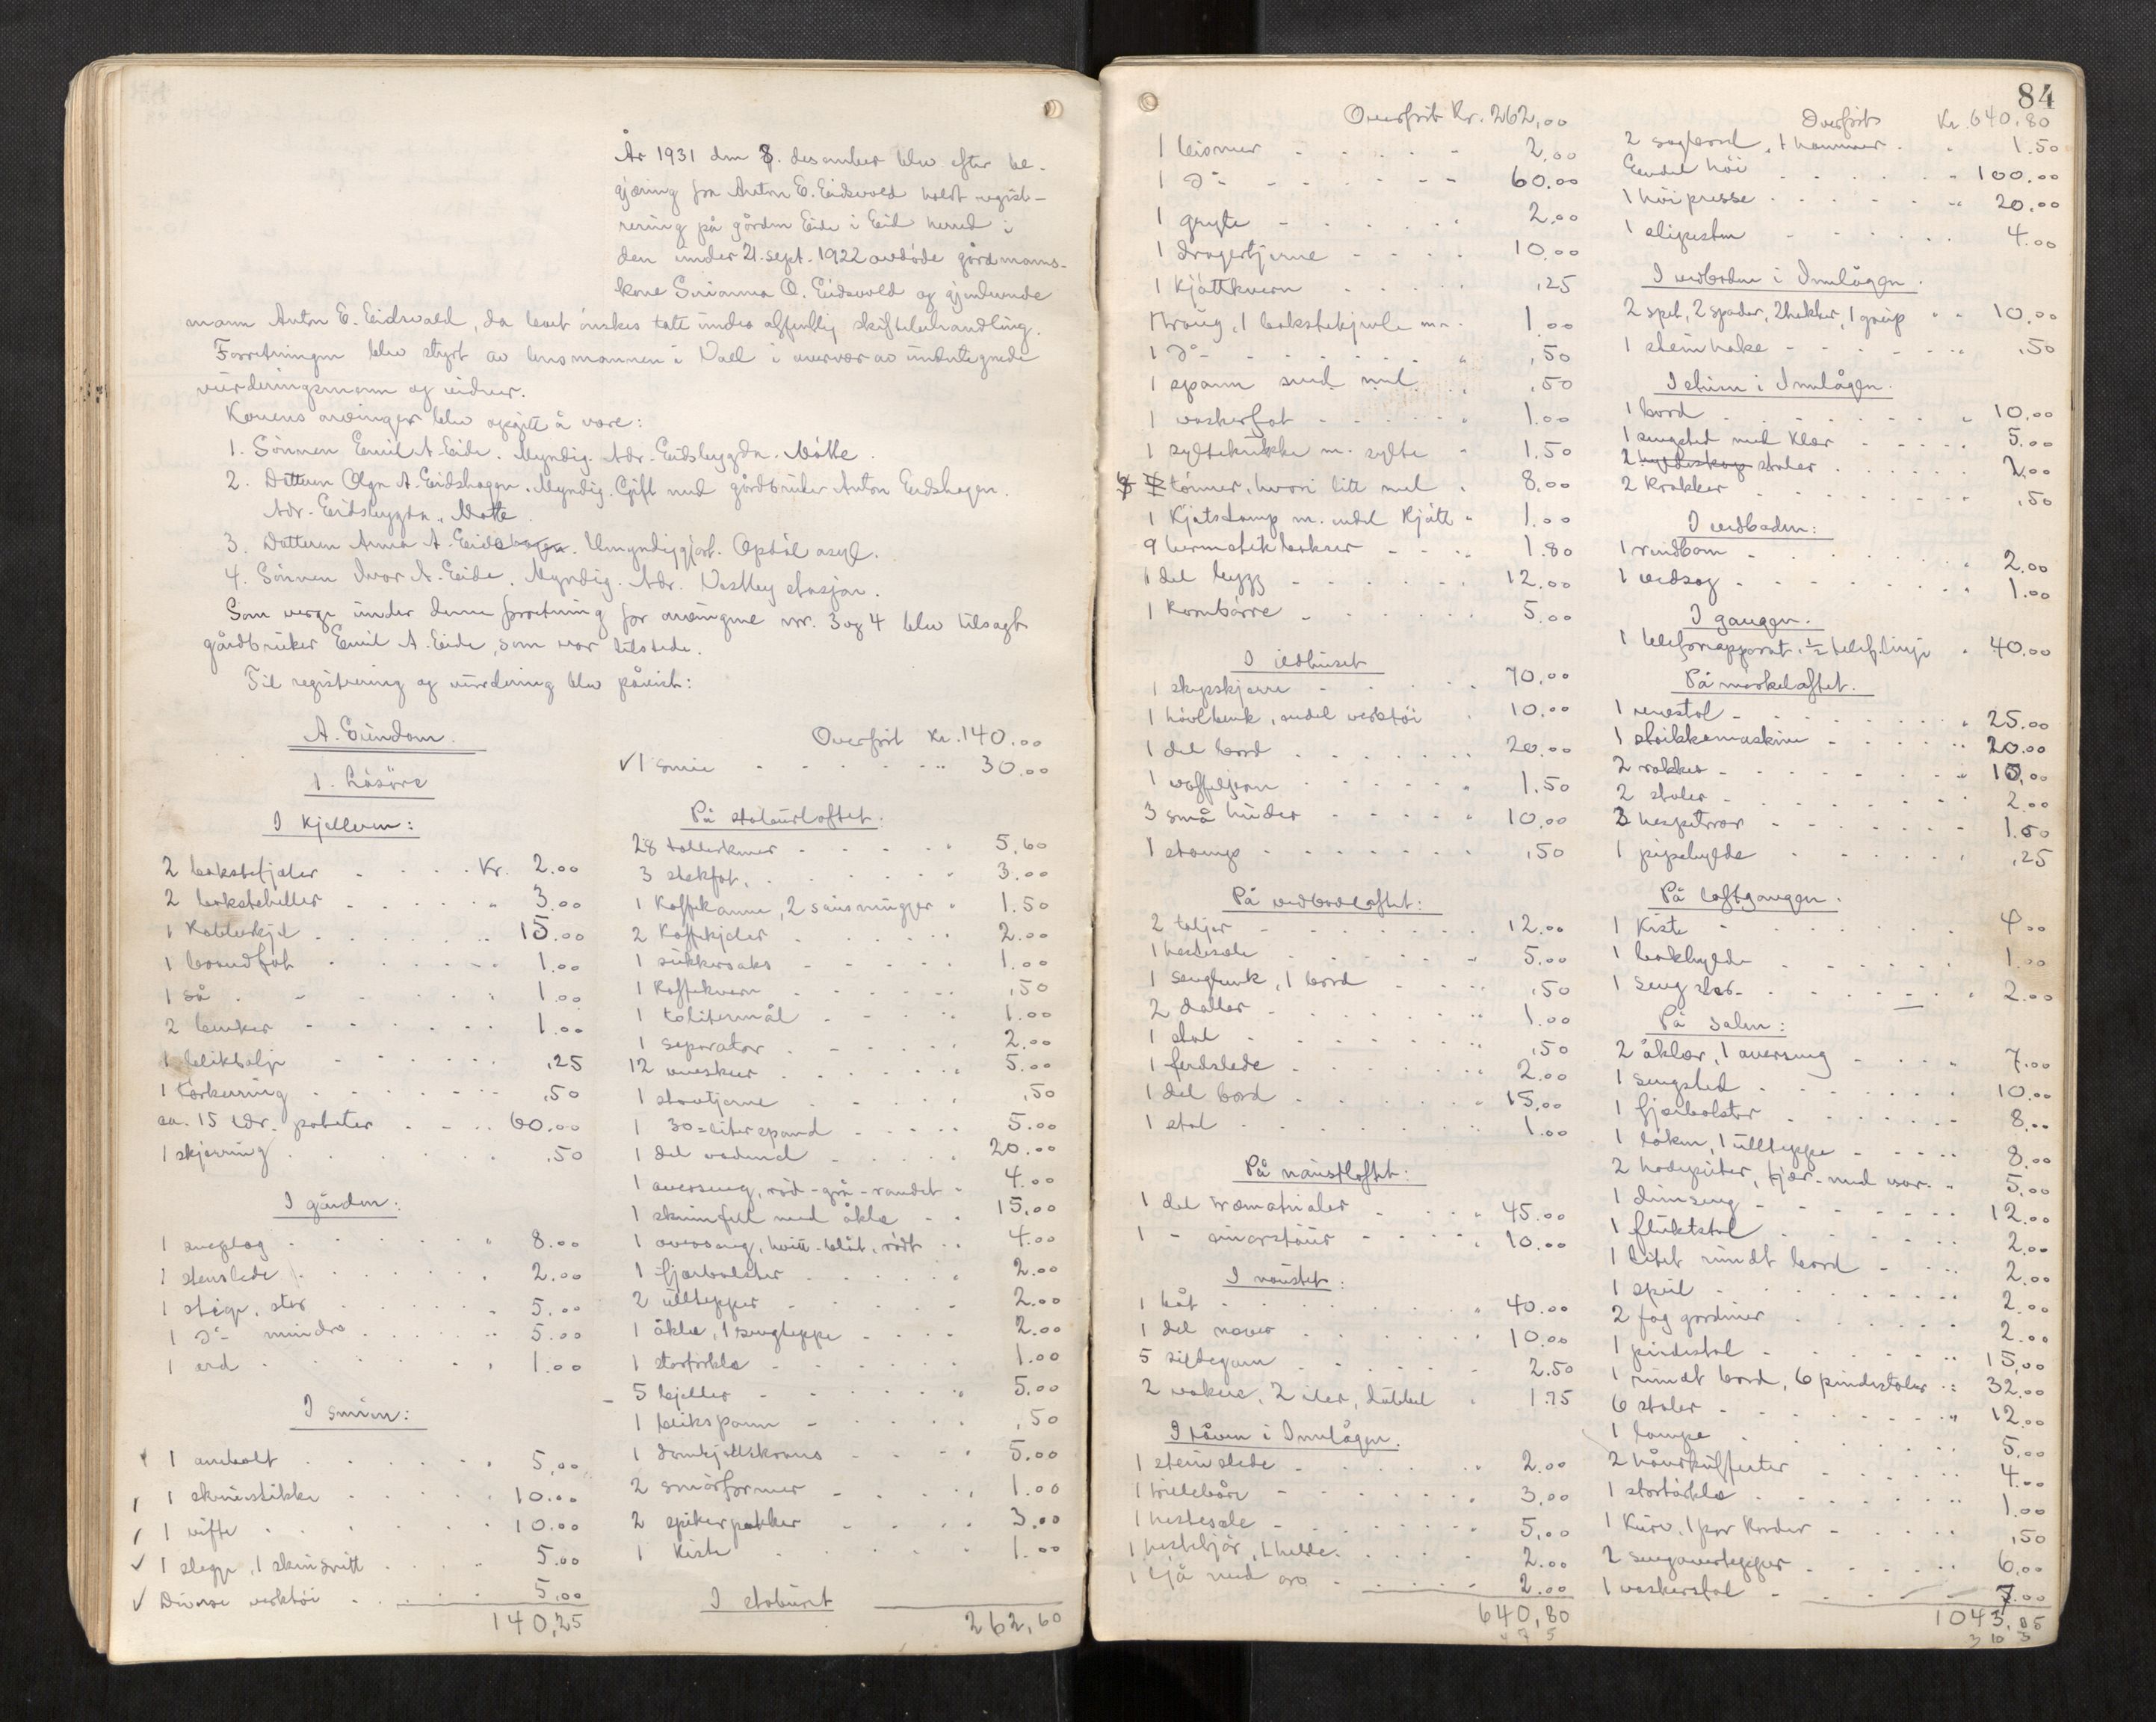 År 1931 den 8. desember blev efter be-
gjæring fra Anton E. Eidsvold holdt regist-
rering på gården Eide i Eid herred i
den under 21. sept. 1922 avdöde gårdmanns-
kone Serianna O. Eidsvold og gjenlevende
mann Anton E. Eidsvold, da boet önskes tatt under offentlig skiftebehandling.
Forretningen blev styrt av lensmannen i Voll i overvær av undertegnede
vurderingsmenn og vidner.
Konens arvinger blev opgitt å være:
1. Sönnen Emil A. Eide. Myndig. Adr. Eidsbygda. Møtte.
2. Datteren Olga A. Eidshagen. Myndig. Gift med gårdbruker Anton Eidshagen.
Adr. Eidsbygda. Møtte.
3. Datteren Anna A. Eide. Umyndiggjort. Opdöl asyl.
4. Sönnen Ivar A. Eide. Myndig. Adr. Vestby stasjon.
Som verge under denne forretning for arvingene nr. 3 og 4 blev tilsagt
gårdbruker Emil A. Eide, som var tilstede.
Til registrering og vurdering blev påvist:
A. Eiendom.
1. Lösöre
I kjelleren:
2 bakstefjöler Kr. 2.00
2 baksteheller 3.00
1 15.00
1 brændfat 1.00
1 så 1.00
2 benker 1.00
1 blikbalje ,25
1 ,50
ca. 15 tdr. poteter 60.00
1 skjæring ,50
I gården:
1 sneplog 8.00
1 stenslede 2.00
1 stige, stor 5.00
1 do mindre 5.00
1 ard 1.00
I smien:
1 ambolt 5.00
1 skruestikke 10.00
1 vifte 10.00
1 slegge, 1 5.00
Diverse verktöi 5.00
140,25
Overfört Kr. 140.00
1 smie 30.00
På stabursloftet.
28 tallerkener 5.60
3 stekfat 3.00
1 Kaffekanne, 2 sausmugger 1.50
2 Kaffekjeler 2.00
1 sukkersaks 1.00
1 Kaffekvern ,50
1 tolitermål 1.00
1 separator 2.00
12 5.00
1 ,50
1 30=liter spand 5.00
1 del vadmel 20.00
1 overseng, röd-grå-randet 4.00
1 skinnfell med åkle 15.00
1 overseng, hvitt-blåt, rödt 4.00
1 fjærbolster 2.00
2 ulltepper 2.00
1 åkle, 1 sengteppe 2.00
1 stortörkle 1.00
5 bjeller 5.00
1 blikspann ,50
1 dombjellekrans 5.00
2 smörformer 1.00
2 spikerpakker 3.00
1 Kiste 1.00
I staburet
262,60
84
Overfört Kr. 262,00
1 bismer 2.00
1 do 60.00
1 gryte 2.00
1 10.00
1 Kjöttkvern ,25
1 traug, 1 bakstekjevle m.m. 1.00
1 do ,50
1 spann med ,50
1 vaskerfat 1.00
1 syltekrukke m. sylte 1.50
8 tönner, hvori litt mel 8.00
1 Kjötstamp m. endel Kjött 1.00
9 hermetikbokser 1.80
1 del bygg 12.00
1 Kornbörre 5.00
I ildhuset
1 skyskjerre 70.00
1 hövlbenk, endel verktöi 10.00
1 del bord 20.00
1 vaffeljern 1.50
3 små huder 10.00
1 stamp ,50
På vedbodloftet:
2 taljer 12.00
1 hestesele 5.00
1 sengbenk, 1 bord ,50
2 daller 1.00
1 stol ,50
1 ferdslede 2.00
1 del bord 15.00
1 stol 1.00
På naustloftet:
1 del træmatrialer 45.00
1 - 10.00
I naustet:
1 båt 40.00
1 del nover 10.00
5 sildegarn 2.50
2 vakere, 2 iler, dubbel 1.75
I låven i Innlågen.
1 steinslede 2.00
1 trillebåre 3.00
1 hestesele 5.00
1 hesteklör, 1 helle 2.00
1 ljå med orv 2.00
640,80
Overfört Kr. 640,80
2 sagbord, 1 hammer 1.50
Endel höi 100.00
1 höipresse 20.00
1 slipesten 4.00
I vedboden i Innlågen.
2 spet, 2 spader, 2 hakker, 1 greip 10.00
1 steinhake ,50
I stuen i Innlågen.
1 bord 10.00
1 sengsted med Klær 5.00
2 stoler 2.00
2 Krakker ,50
I vedboden:
1 rundbom 2.00
1 vedsag 1.00
I gangen.
1 telefonapparat, ½ telef.linje 40.00
På mørkeloftet.
1 vevstol 25.00
1 strikkemaskin 20.00
2 rokker 10.00
2 stoler 2.00
3 hespetrær 1.50
1 pipehylde ,25
På loftgangen.
1 Kiste 4.00
1 bokhylde 1.00
1 seng 2.00
På salen:
2 åklær, 1 overseng 7.00
1 sengsted 10.00
1 fjærbolster 8.00
1 laken, 1 ullteppe 8.00
2 hodeputer, fjær- med var 5.00
1 dunseng 12.00
1 fluktstol 2.00
1 litet rundt bord 2.00
1 speil 2.00
2 fag gardiner 2.00
1 pindestol 15.00
1 rundt bord, 6 pindestoler 32.00
6 stoler 12.00
1 lampe 5.00
2 håndkufferter 4.00
1 stortörkle 1.00
1 Kurv, 1 par Karder ,50
2 sengovertepper 6.00
1 vaskerstol 7.00
1043,05